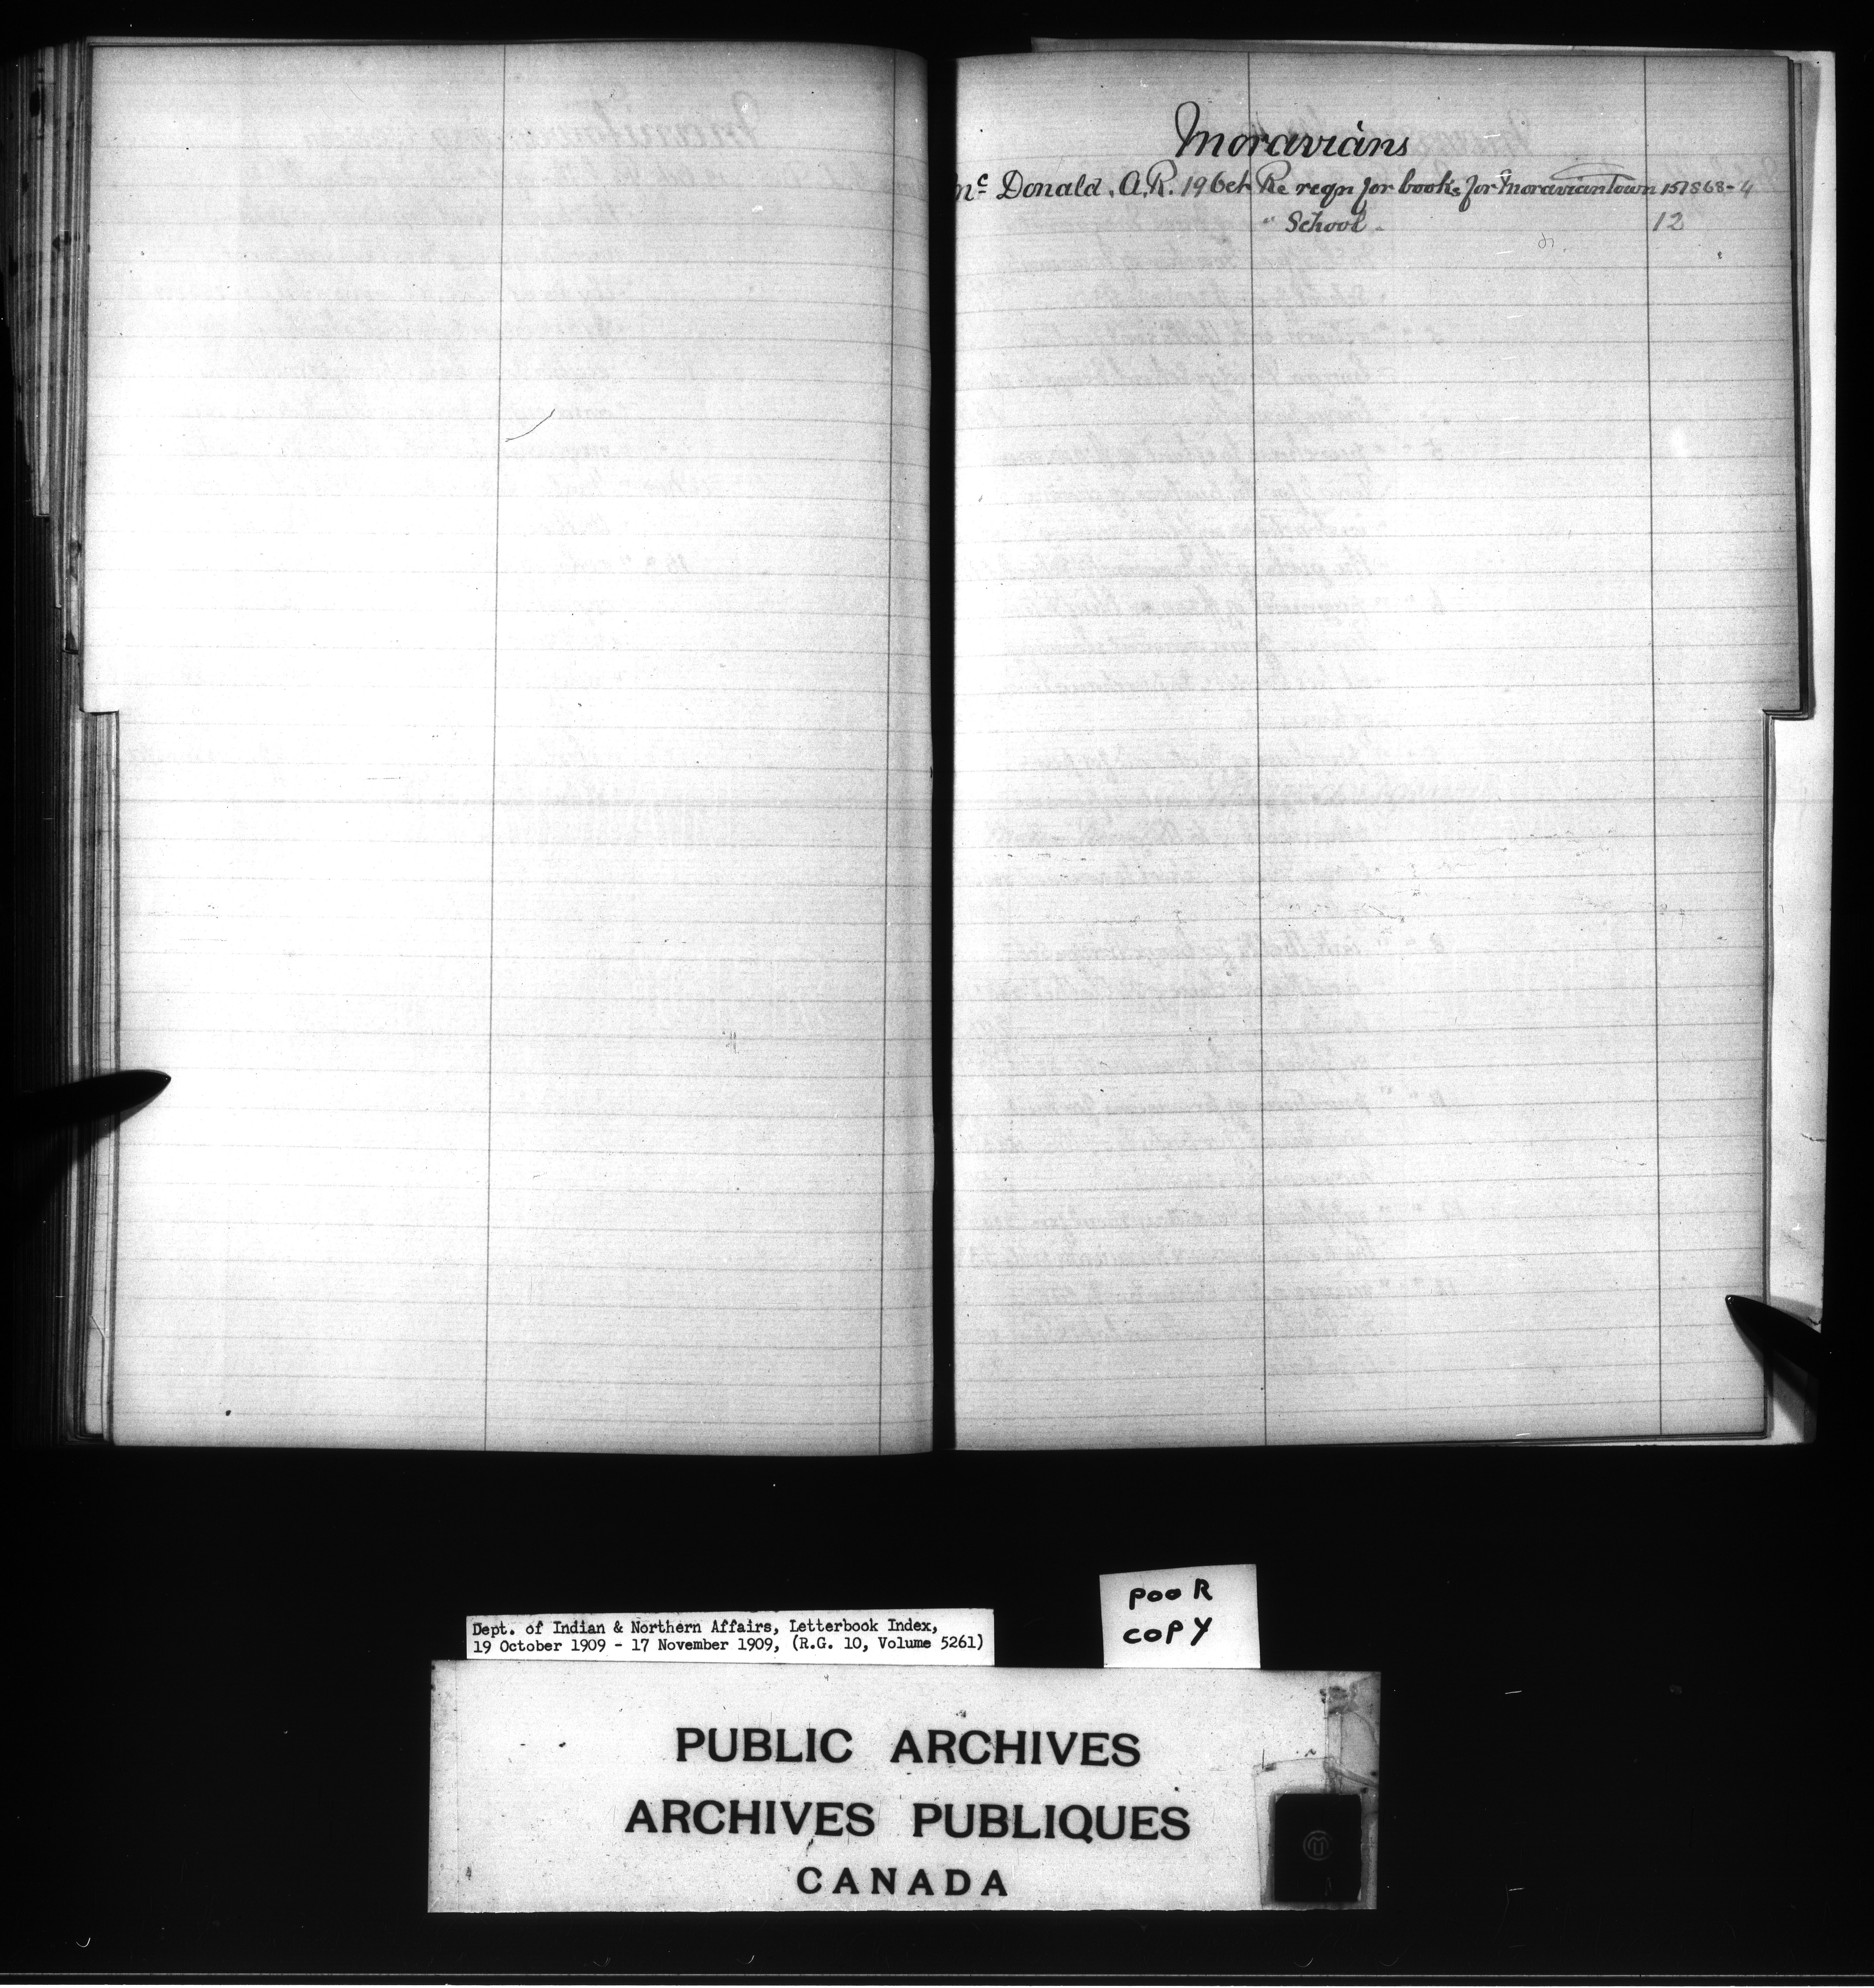 Moravians
Mc Donald, A.R. 19 Oct Re reqn for books for Moraviantown 157868-4
" School. 12
Dept. of Indian & Northern Affairs, Letterbook Index,
19 October 1909 - 17 November 1909, (R.G. 10, Volume 5261)
POOR
COPY
PUBLIC ARCHIVES
ARCHIVES PUBLIQUES
CANADA